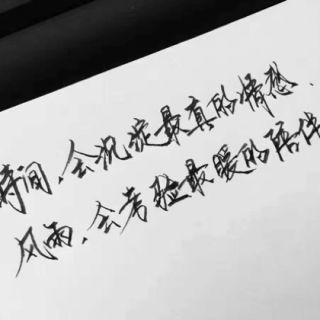 时间,会沉淀最真的情愁、
风雨,会考验最暖的陪伴